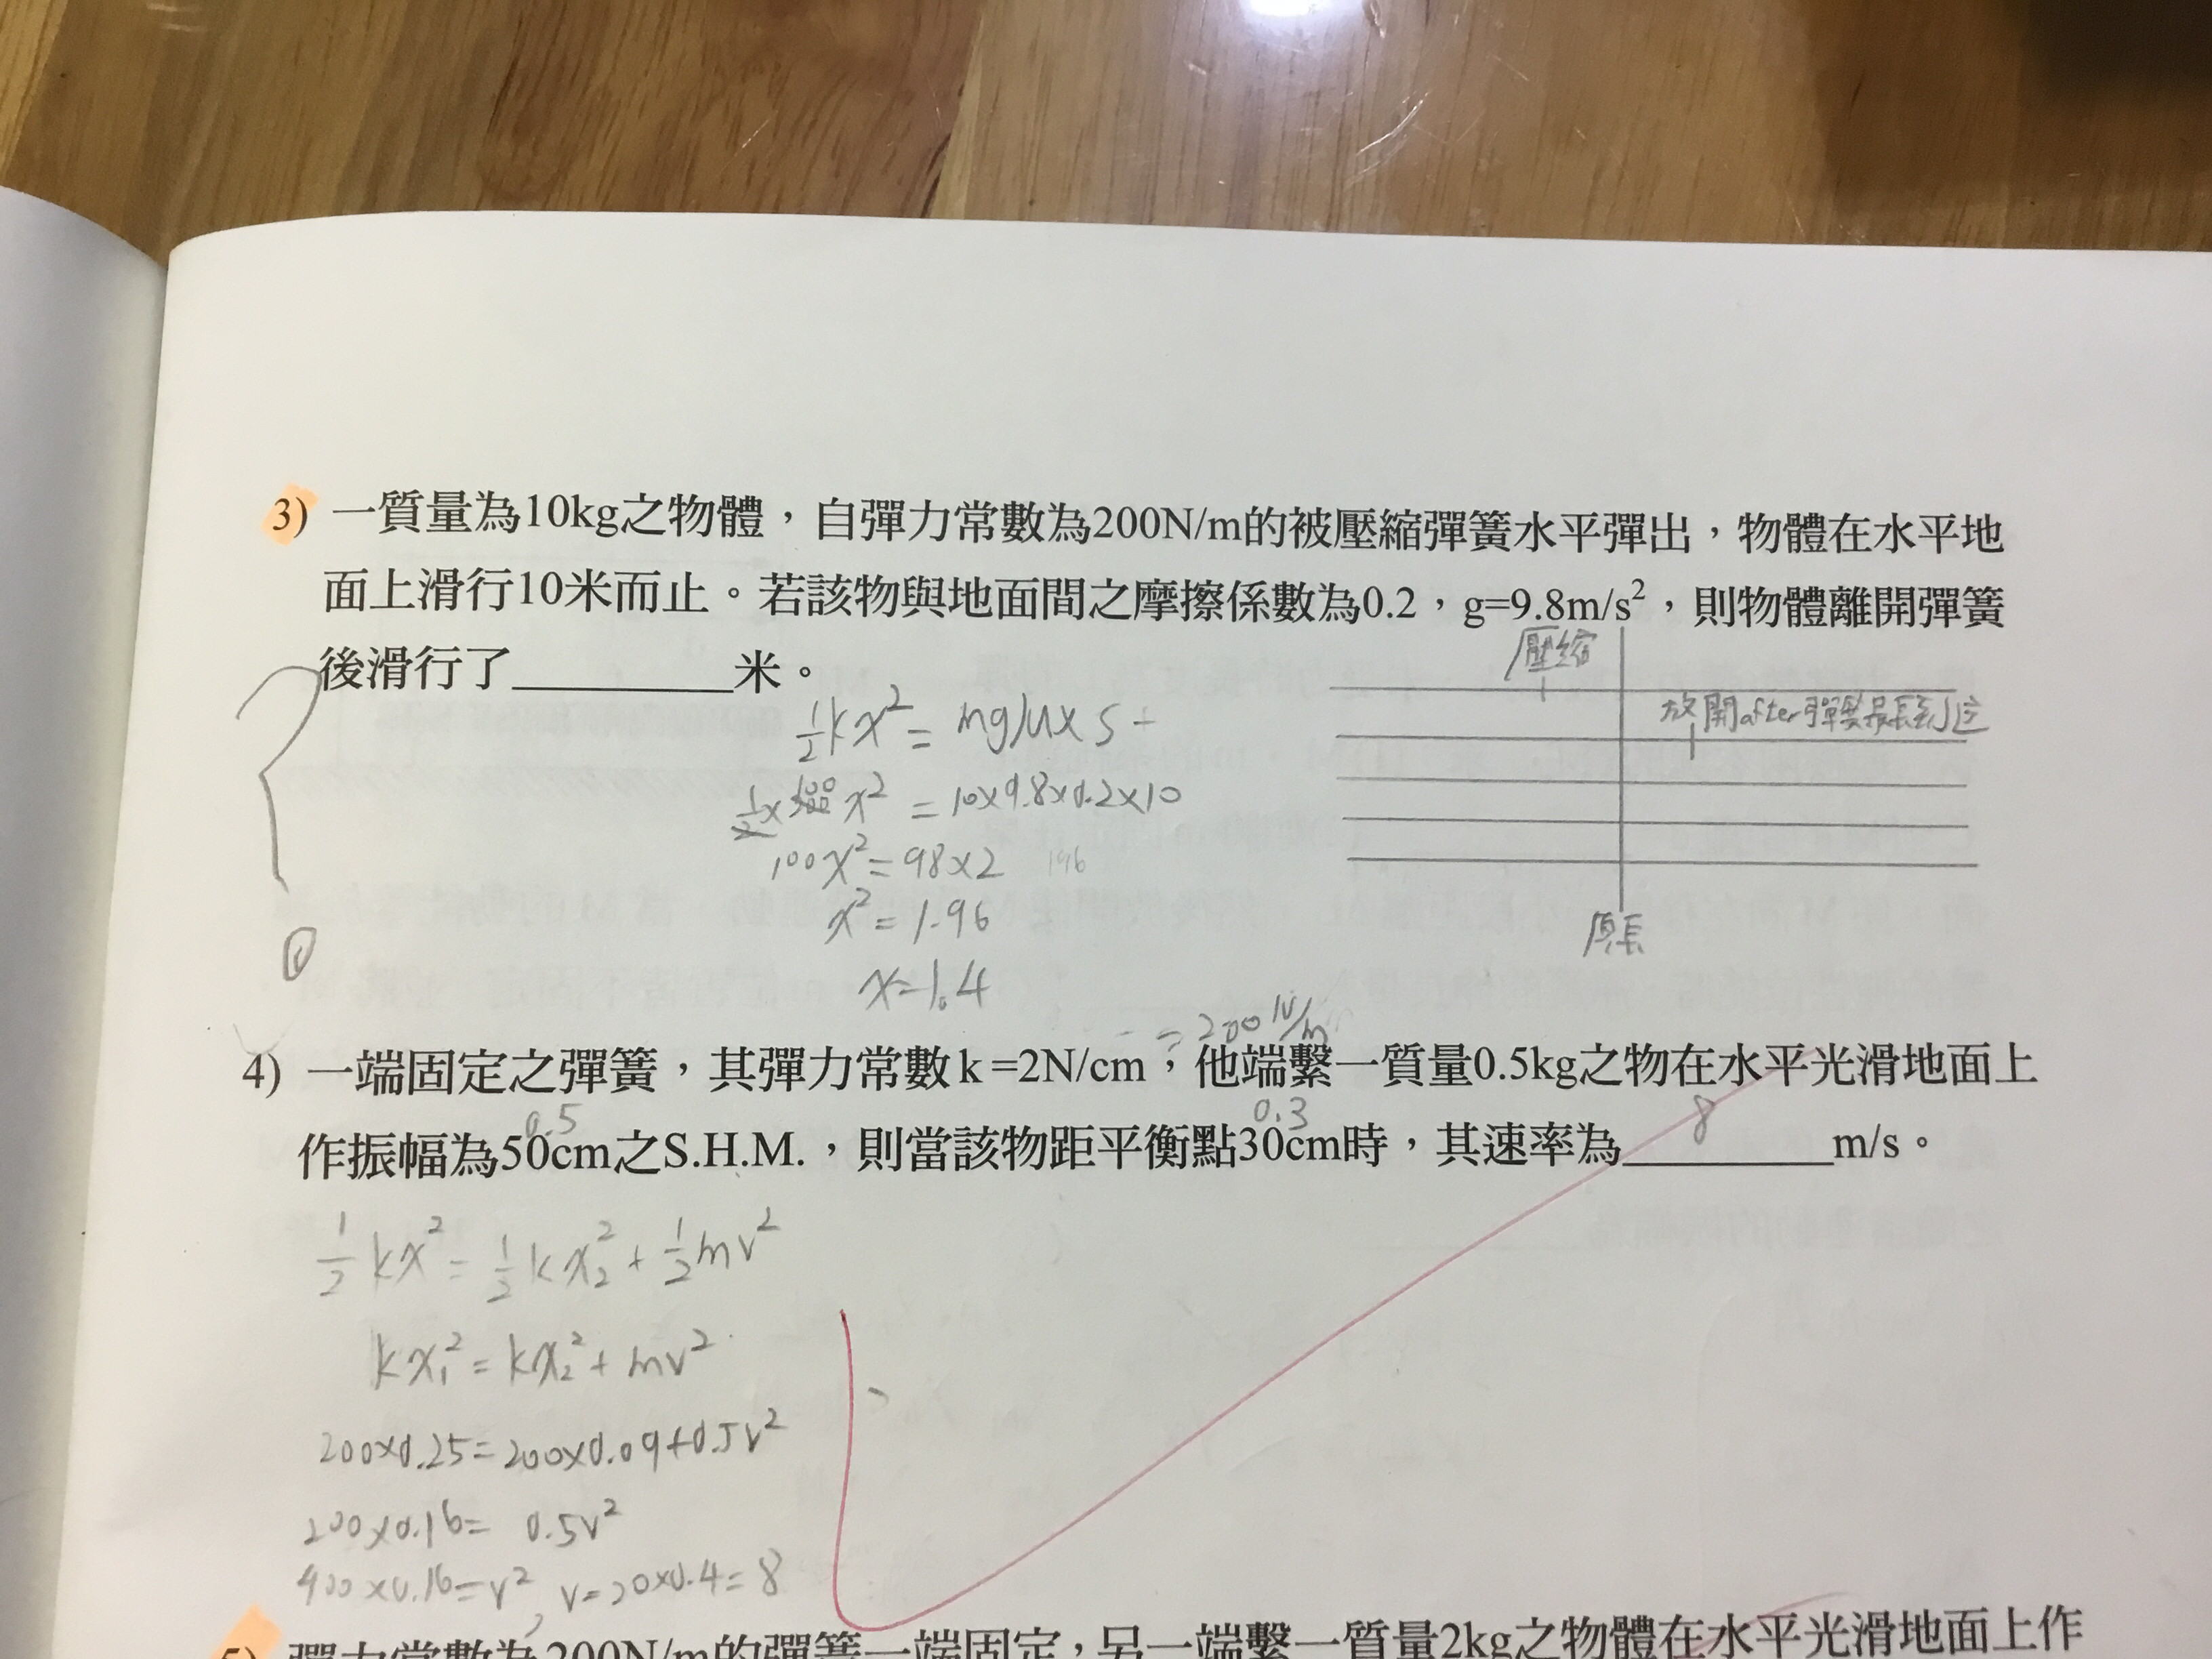 3) 一質量為10kg之物體，自彈力常數為200N/m的被壓縮彈簧水平彈出，物體在水平地
面上滑行10米而止。若該物與地面間之摩擦係數為0.2，g=9.8m/s²，則物體離開彈簧
後滑行了________米。
壓縮
放開after彈簧最長到這
原長
½kx² = mgμ×S+
½×200x² = 10×9.8×0.2×10
100x² = 98×2 196
x² = 1.96
x=1.4
= 200 N/m
4) 一端固定之彈簧，其彈力常數k=2N/cm，他端繫一質量0.5kg之物在水平光滑地面上
0.5 0.3 8
作振幅為50cm之S.H.M.，則當該物距平衡點30cm時，其速率為________m/s。
½kx² = ½kx₂² + ½mv²
kx₁² = kx₂² + mv²
200×0.25=200×0.09+0.5v²
200×0.16= 0.5v²
400×0.16=v², v=20×0.4=8
5) 彈力常數為200N/m的彈簧一端固定，另一端繫一質量2kg之物體在水平光滑地面上作